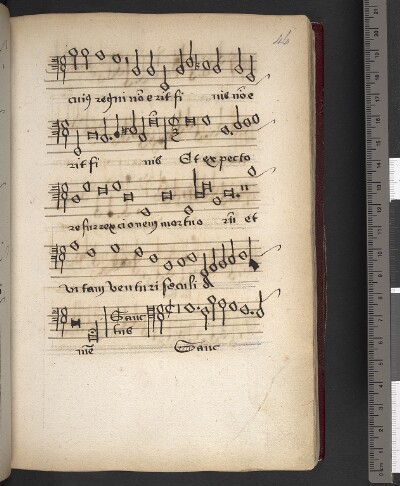 46
cuiꝯ regni nō e rit fi nis nō e
rit fi nis Et expecto
resurrexcionem mortuo rū et
vi tam venturi seculi a
Sanc
tus
mē Sanc